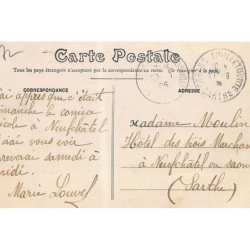 Carte Postale
Tous les pays étrangers n'acceptent pas la correspondance au recto. (Se renseigner à la poste).
CORRESPONDANCE
ADRESSE
J'ai appris que c'était
dimanche le comice
cole à Neufchâtel
irai vous voir
arriverai samedi à
midi.
Marie Louvel
Madame Moulin
Hôtel des trois Marchan
à Neufchâtel en saon
(Sarthe)